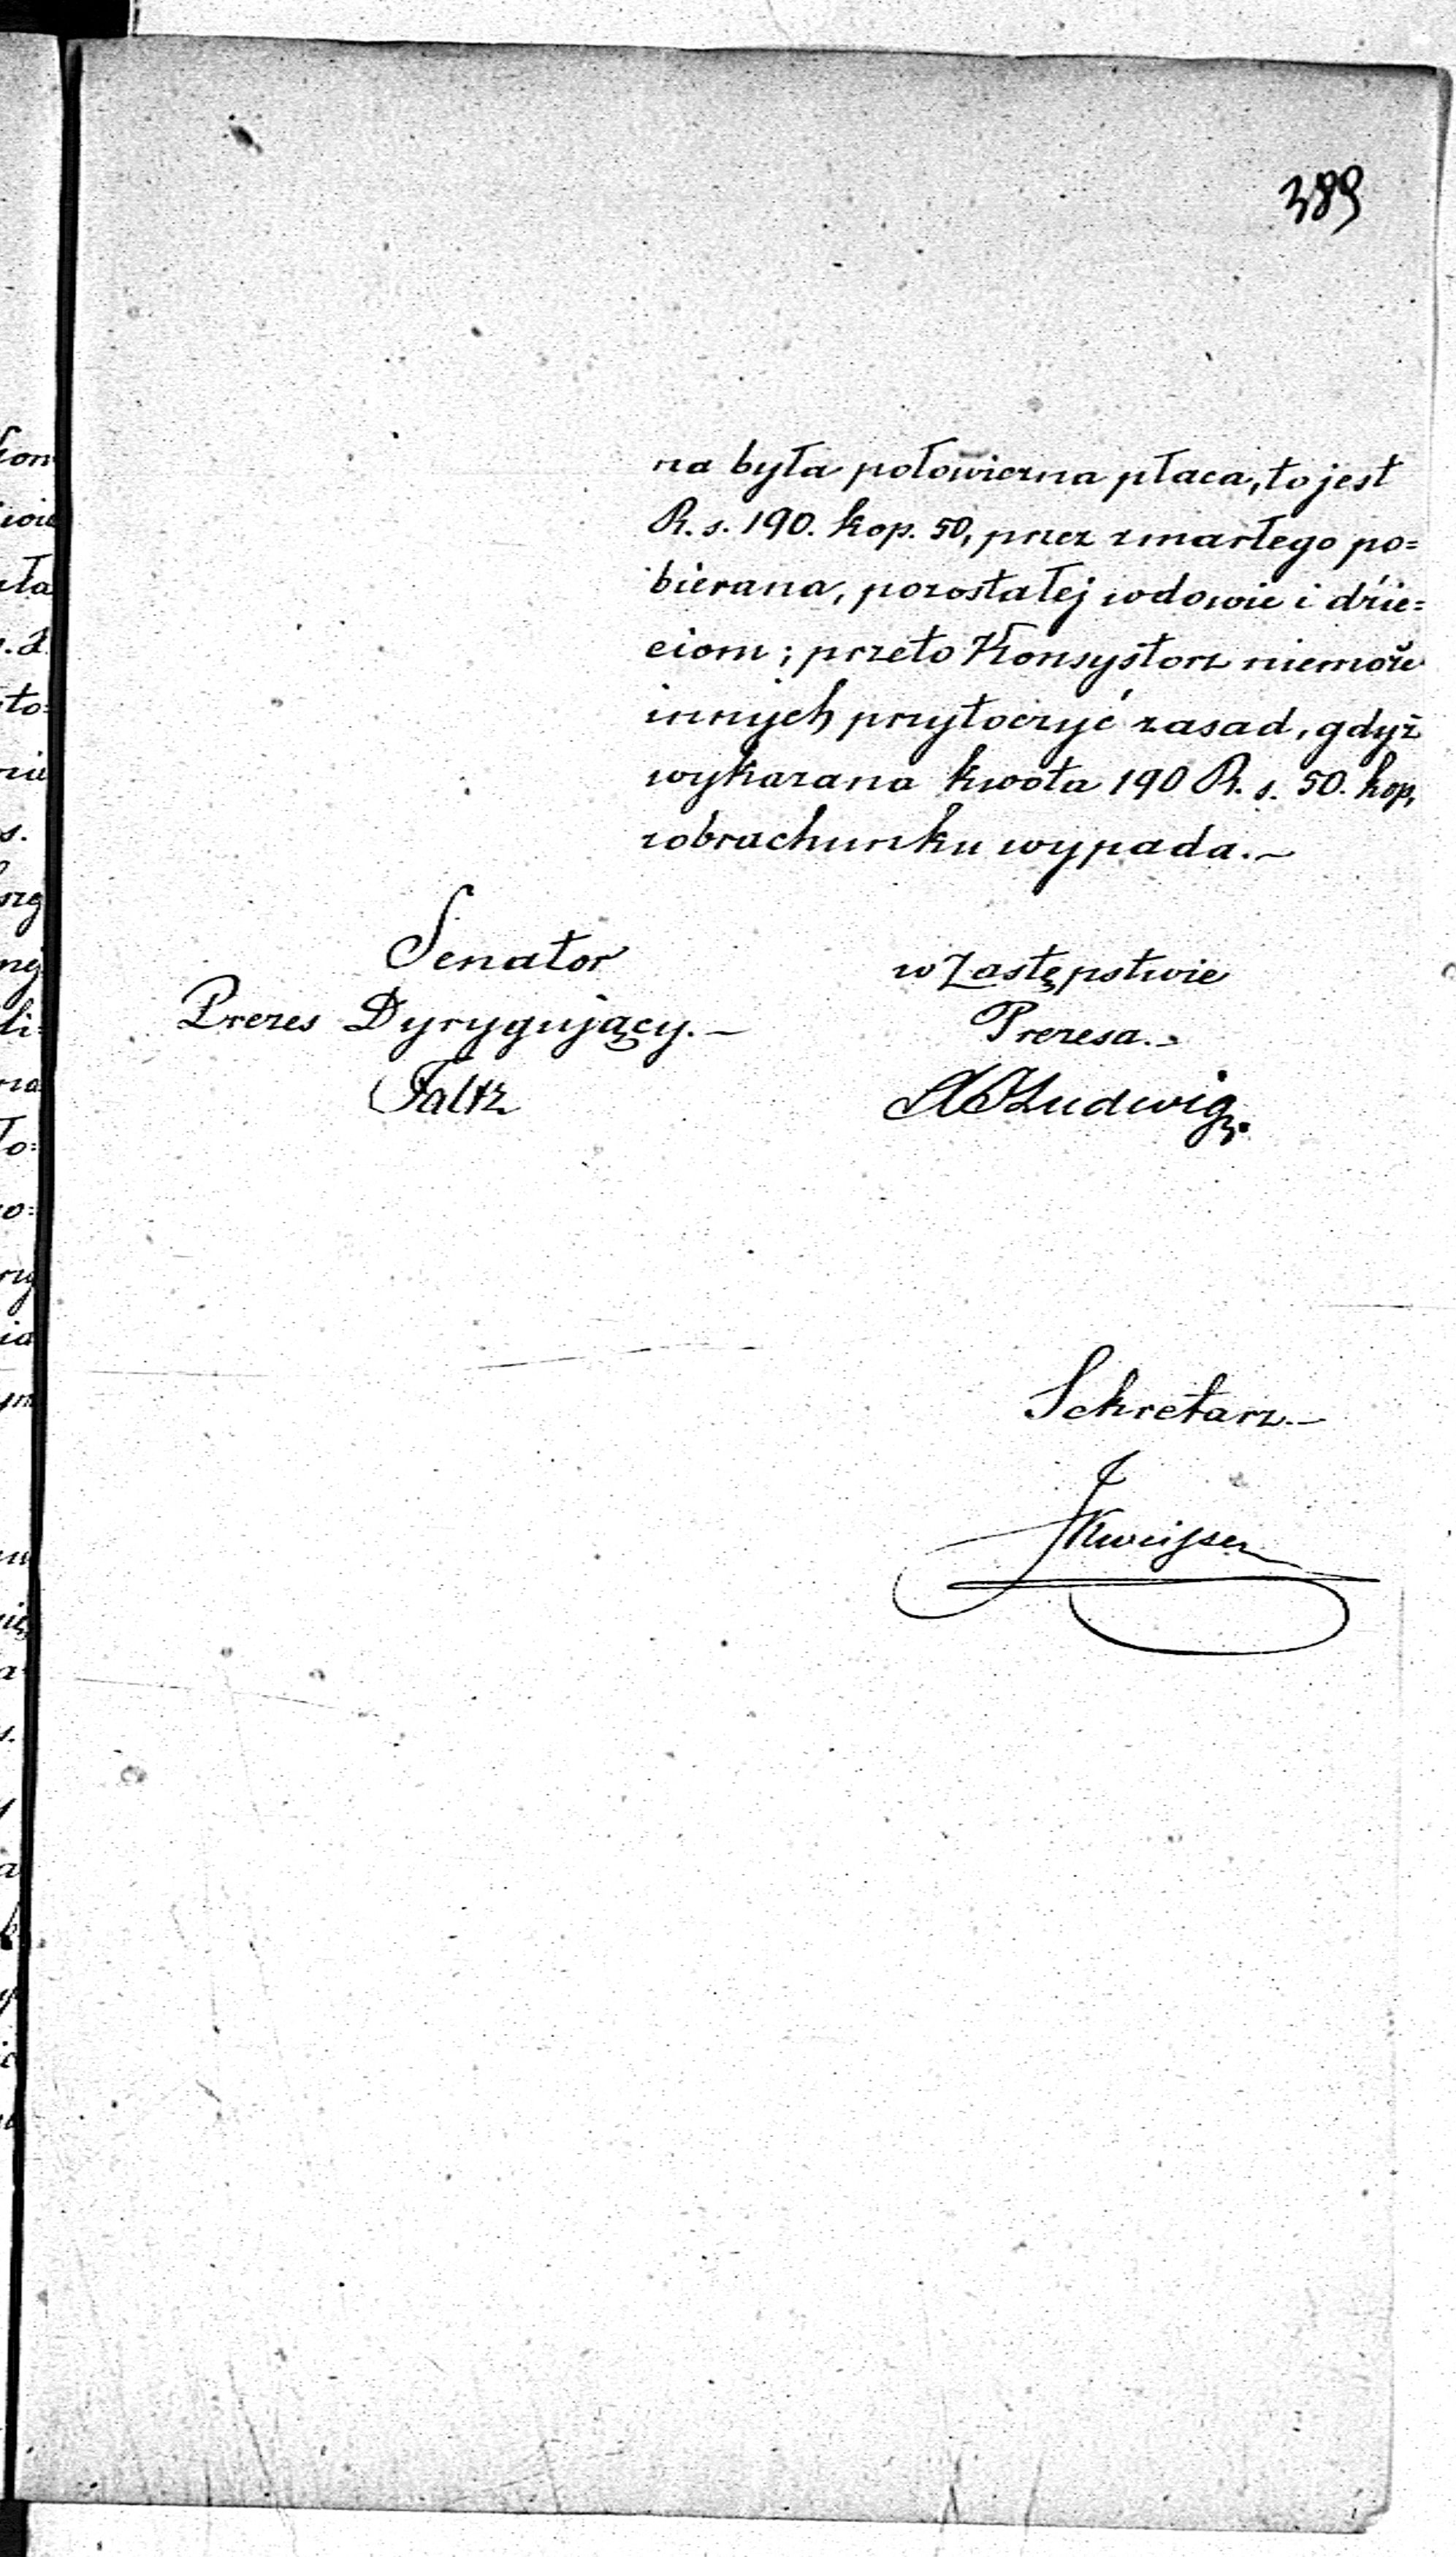 389
na była połowiczna płaca, to jest
R. s. 190. kop. 50, przez zmarłego po=
bierana, pozostałej wdowie i dzie=
ciom; przeto Konsystorz niemoże
innych przytoczyć zasad, gdyż
wykazana kwota 190 R. s. 50. kop,
zobrachunku wypada.—
Senator
Prezes Dyrygujący.—
Faltz
w Zastępstwie
Prezesa.—
Ludwig
Sekretarz.—